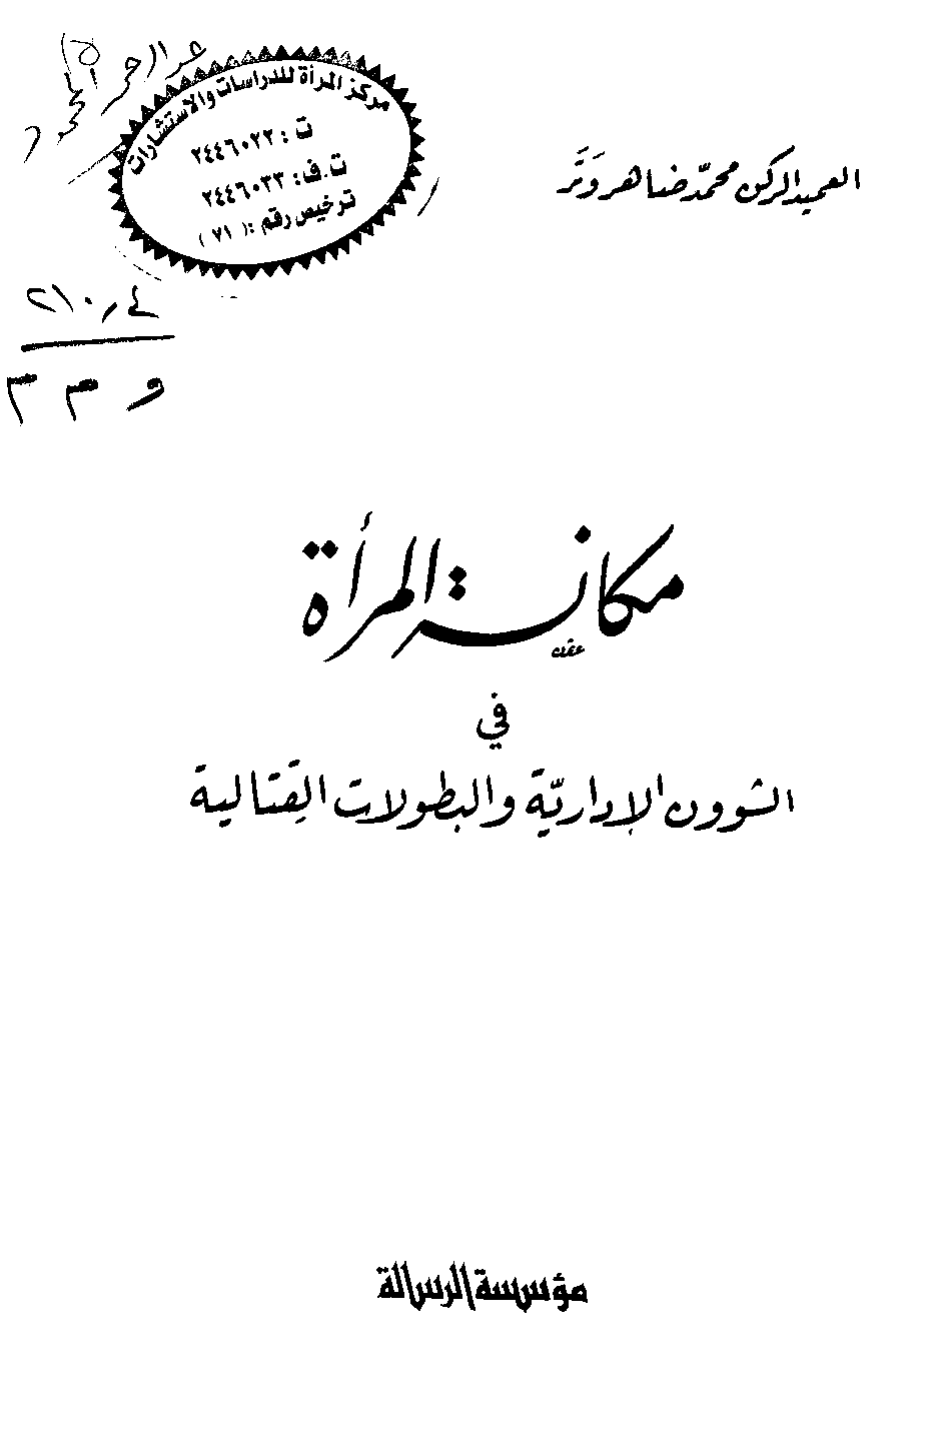 مركز المرأة للدراسات والاستشارات
ت : ٢٤٤٦٠٢٢
ت.ف: ٢٤٤٦٠٣٣
ترخيص رقم : ( ٧١ )
العميد الركن محمّد ضاهر وَتَر
مكانة المرأة
في
الشؤون الإداريّة والبطولات القِتالية
مؤسسة الرسالة